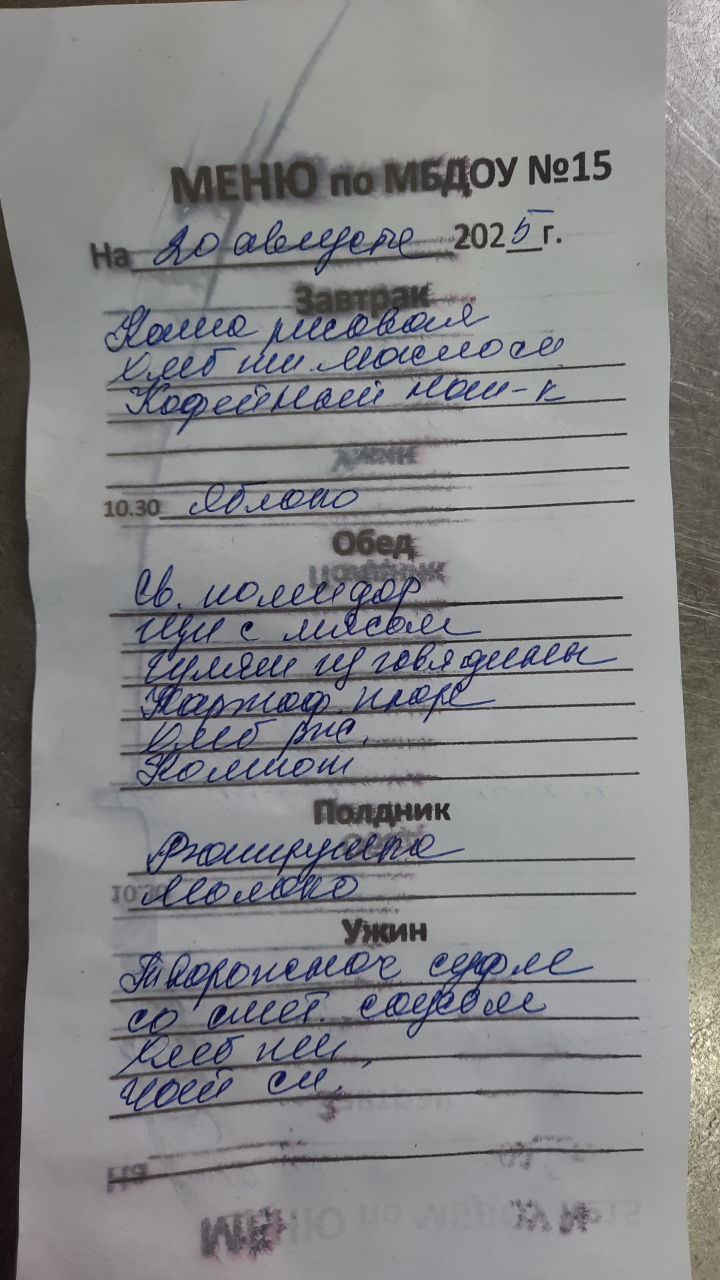 МЕНЮ по МБДОУ №15
На 20 августа 2025 г.
Завтрак
Каша рисовая
Хлеб пш. масло сл
Кофейный нап-к
10.30 Яблоко
Обед
Св. помидор
Щи с мясом
Гуляш из говядины
Картоф. пюре
Хлеб рж.
Компот
Полдник
Молоко
Ужин
Творожное суфле
со смет. соусом
Хлеб пш,
Чай сл.